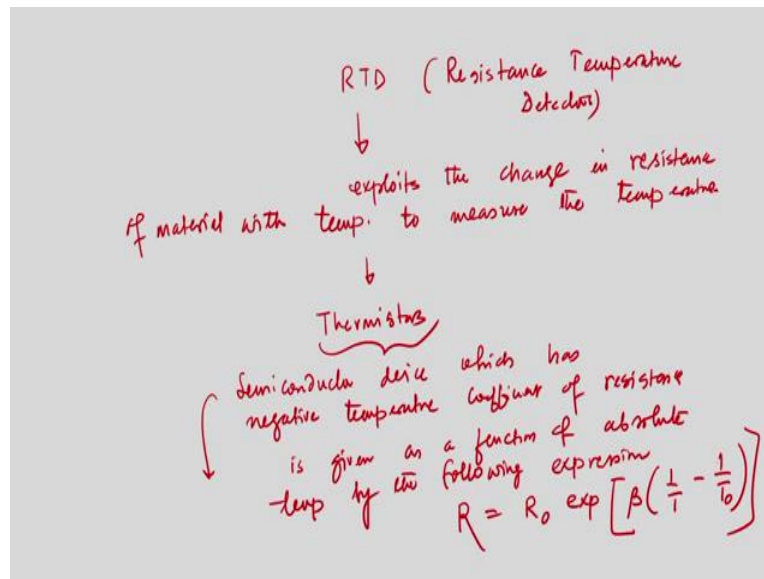 RTD (Resistance Temperature
Detectors)
exploits the change in resistance
of material with temp. to measure the temperature
Thermistors
Semiconductor device which has
negative temperature coefficient of resistance
is given as a function of absolute
temp by the following expression
R = R₀ exp[β(1/T - 1/T₀)]